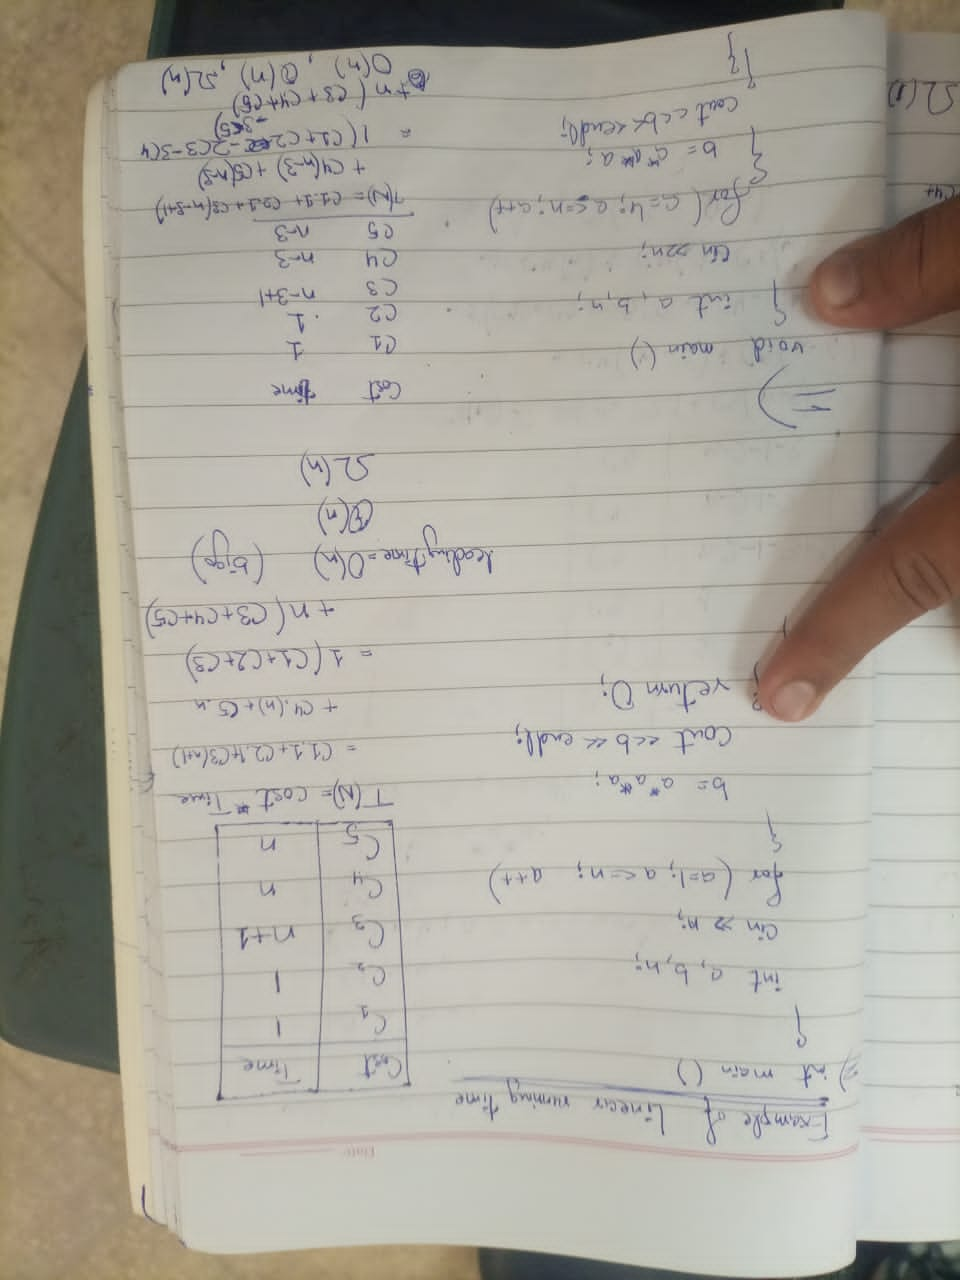 Date:
Example of Linear running time
=) int main ()
{
int a, b, n;
cin >> n;
for (a=1; a<=n; a++)
{
b = a*a*a;
cout <<b<< endl;
return 0;
}
Cost Time
C1 1
C2 1
C3 n+1
C4 n
C5 n
T(N) = Cost * Time
= C1.1 + C2.1 + C3(n+1)
+ C4.(n) + C5.n
= 1 (C1+C2+C3)
+ n (C3+C4+C5)
leading time = O(n) (big o)
Θ(n)
Ω(n)
=)
void main ()
{ int a, b, n;
cin >>n;
for (a=4; a<=n; a++)
{
b = a*a*a;
cout <<b<<endl;
}}
Cost time
C1 1
C2 1
C3 n-3+1
C4 n-3
C5 n-3
T(N) = C1.1 + C2.1 + C3(n-3+1)
+ C4(n-3) + C5(n-3)
= 1(C1+C2 -2C3-3C4
-3C5)
+n (C3+C4+C5)
O(n), Θ(n), Ω(n)
Ω(1)
C4+